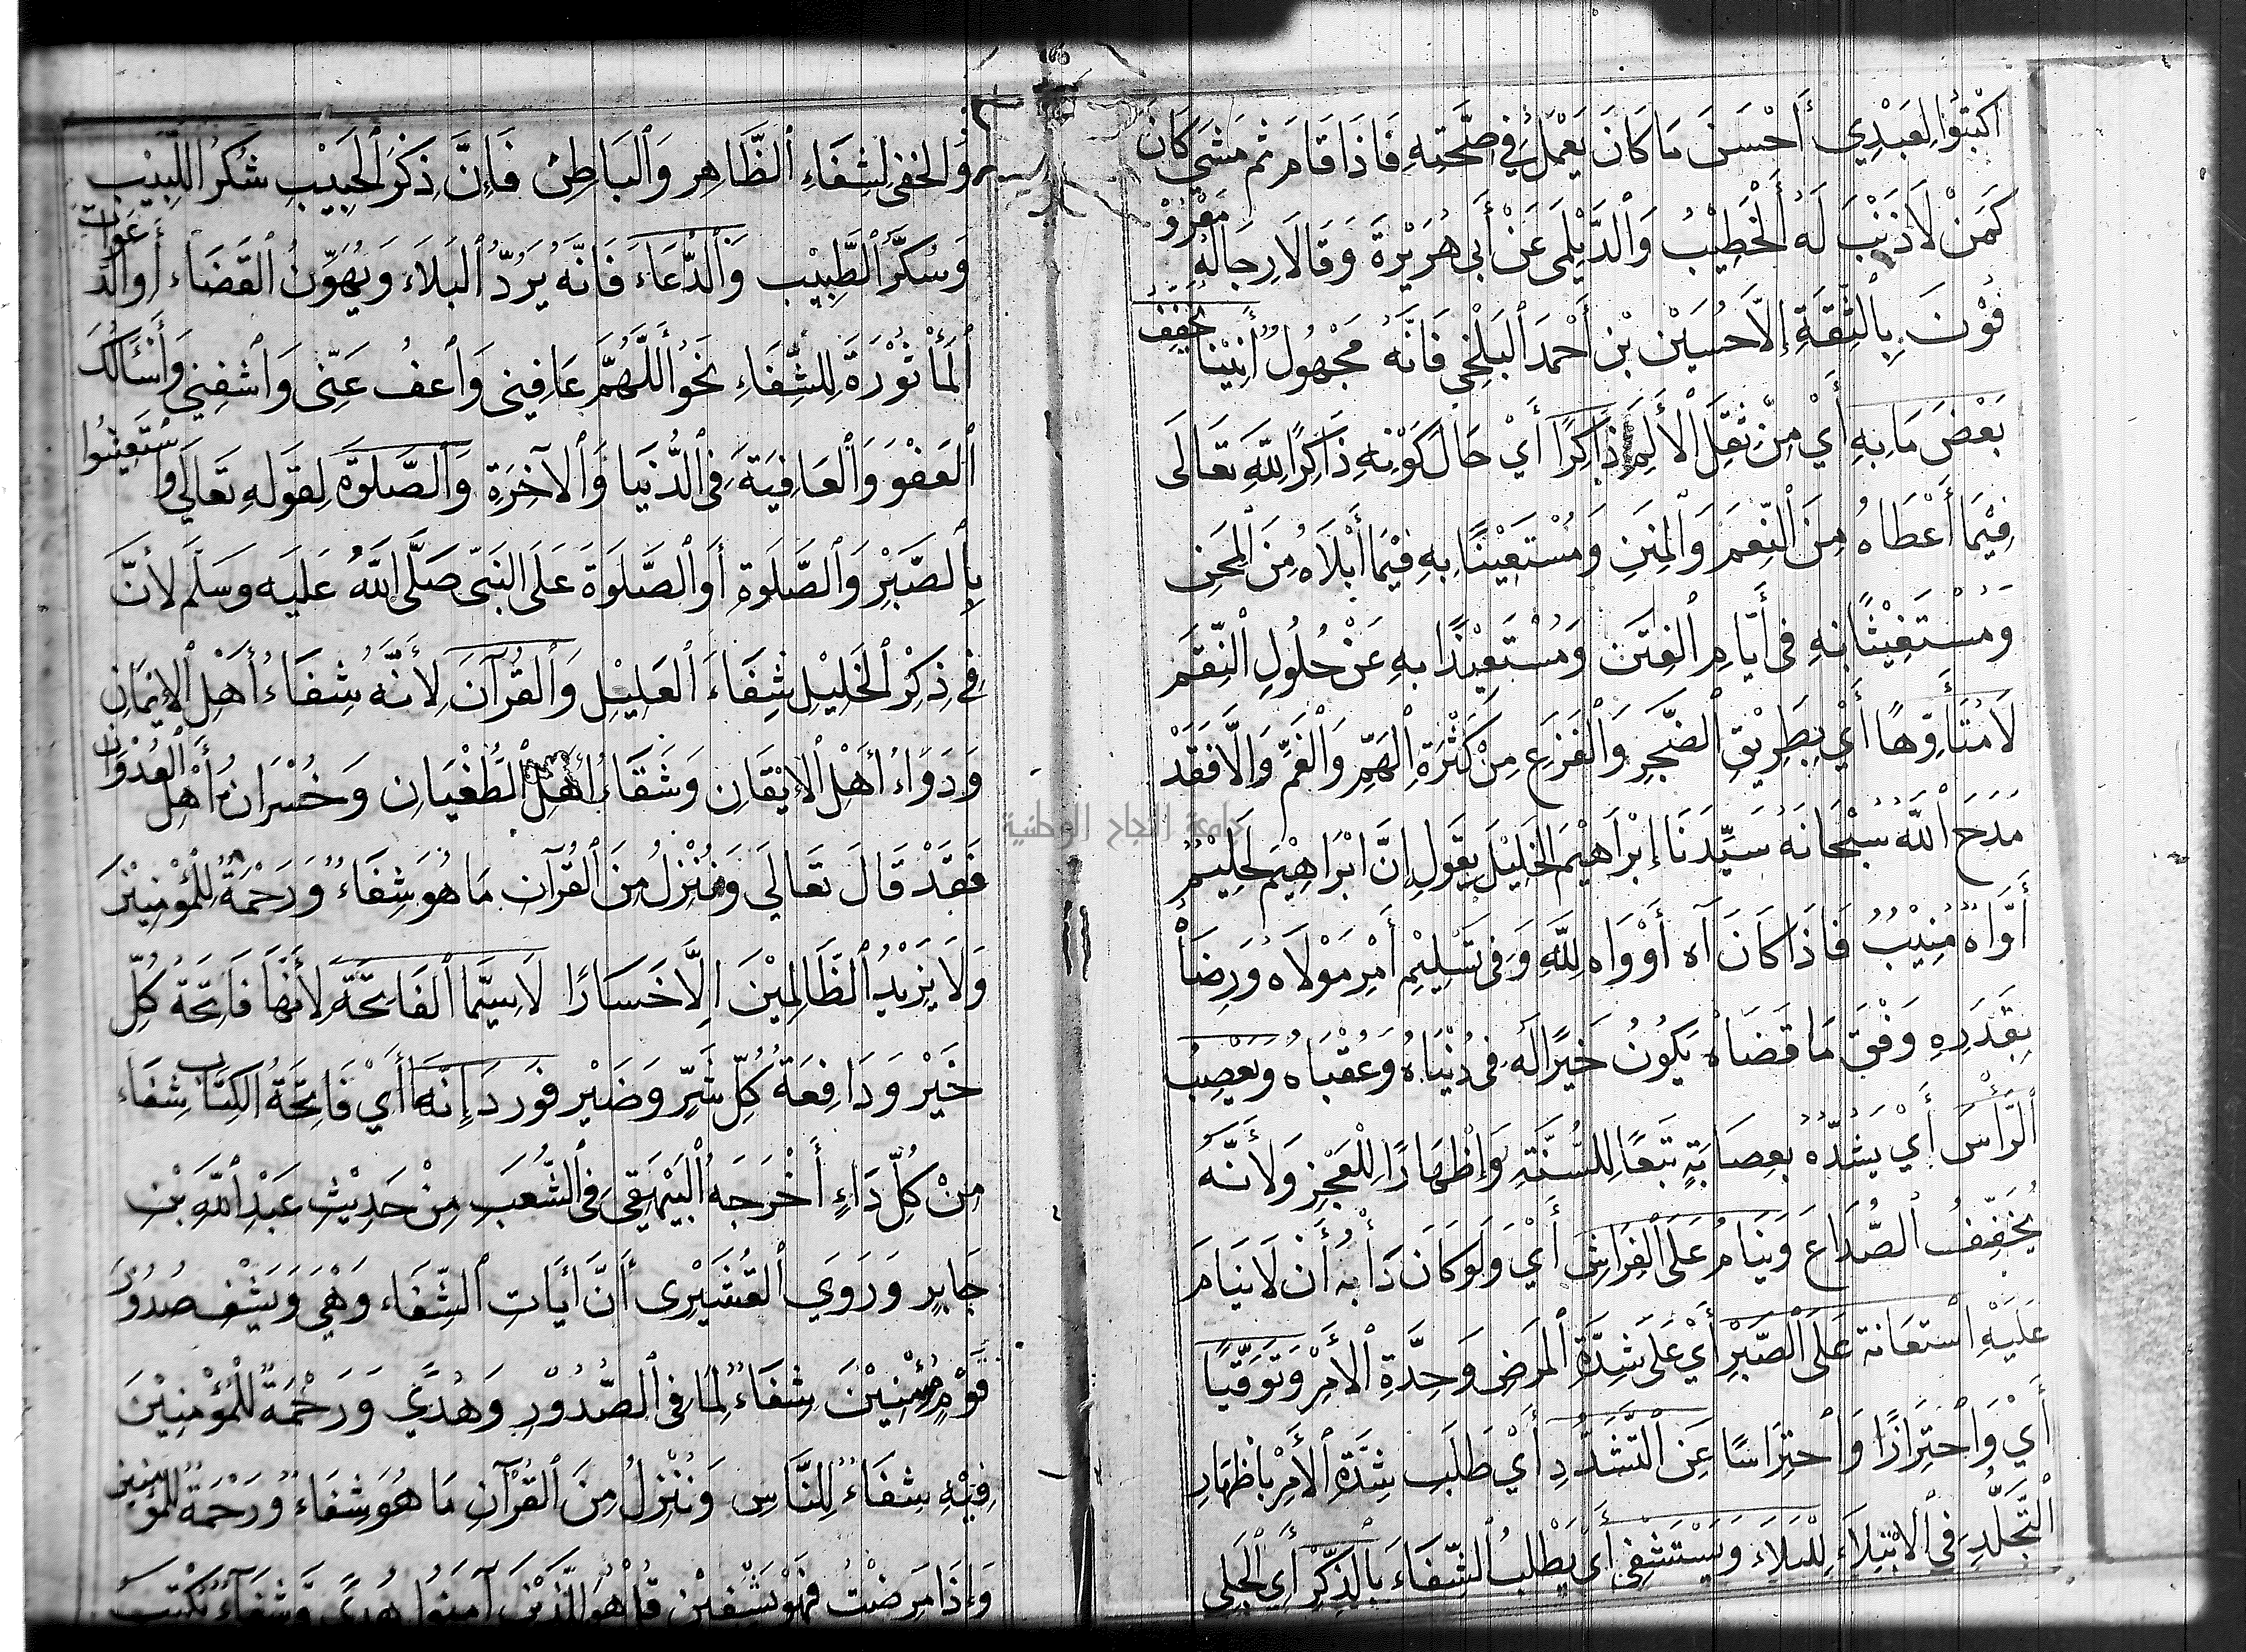 اُكْتُبُوْا لِعَبْدِي أَحْسَنَ مَا كَانَ يَعْمَلُ فِي صِحَّتِهِ فَاذَا قَامَ ثم مَشَى كَانَ
كَمَنْ لَا ذَنْبَ لَهُ الْخَطِيْبُ وَالدَّيْلَمِى عَنْ أَبِى هُرَيْرَةَ وَقَالَا رِجَالُهُ مَعْرُوْ
فُوْنَ بِالثِّقَةِ إِلَّا حُسَيْن بْن أَحْمَدَ الْبَلْخِي فَانَّهُ مَجْهُولٌ أَنِيْنًا يُخَفِفُ
بَعْضَ مَا بِهِ أَيْ مِنْ ثِقَلِ الْأَلَمِ ذَاكِرًا أَيْ حَالَ كَوْنِهِ ذَاكِرًا لِلَّهِ تَعَالَى
فِيْمَا أَعْطَاهُ مِنَ النِّعَمِ وَالْمِنَنِ وَمُسْتَعِيْنًا بِهِ فِيْمَا أَبْلَاهُ مِنَ الْمِحَنِ
وَمُسْتَغِيْثًا بِهِ فِى أَيَّامِ الْفِتَن وَمُسْتَعِيْذًا بِهِ عَنْ حُلُولِ النِّقَمِ
لَا مُتَأَوِّهًا أَيْ بِطَرِيْقِ الضَّجَرِ وَالْفَزَعِ مِنْ كَثْرَةِ الْهَمِّ وَالْغَمِّ وَالَّا فَقَدْ
مَدَحَ اللَّهُ سُبْحَانَهُ سَيِّدَنَا إِبْرَاهِيْمَ الْخَلِيْلَ بِقَولِ إِنَّ ابْرَاهِيْمَ لَحَلِيْمٌ
أَوَّاهٌ مُنِيْبٌ فَاذَا كَانَ آه أَوْوَاه لِلَّهِ وَفِى تَسْلِيْمِ أَمْرِ مَوْلَاه وَرِضَاهُ
بِقَدَرِهِ وَفْقَ مَا قَضَاهُ يَكُونُ خَيْرًا لَهُ فِى دُنْيَاهُ وَعُقْبَاهُ وَيَعْصِبُ
الرَّأْسَ أَيْ يَشُدُّهُ بِعِصَابَةٍ تَبَعًا لِلسُّنَّةِ وَإِظْهَارًا لِلْعَجْزِ وَلِأَنَّهُ
يُخَفِّفُ الصُّدَاعَ وَيَنَامُ عَلَى الْفِرَاشِ أَيْ وَلَو كَانَ دَأْبُهُ أَن لَا يَنَامَ
عَلَيْهِ اسْتعَانة عَلَى الصَّبْرِ أَيْ عَلَى شِدَّةِ الْمَرَضِ وَحِدَّةِ الْأَمْرِ وَتَوَقِّيًا
أَيْ وَاحْتِرَازًا وَاحْتِرَاسًا عَنِ التَّشَدُّدِ أَيْ طَلَبِ شِدَّةِ الْأَمْرِ بِاظْهَارِ
التَّجَلُّدِ فِى الْابْتِلَاءِ لِلْبَلَاء وَيَسْتَشْفِى أَيْ يَطْلُبُ الشِّفَاءَ بِالذِّكْرِ أَي الْجَلِى
وَالْخفى لِشِفَاءِ الظَّاهِر وَالْبَاطِنْ فَإِنَّ ذِكْرَ الْحَبِيْبِ شُكْرُ اللَّبِيْبِ
وَسُكَّرُ الطَّبِيْب وَالدُّعَاءَ فَانَّهُ يَرُدُّ الْبَلَاءَ وَيُهَوِّنُ الْقَضَاءَ أَوالدَّعَوَات
الْمَأْثُوْرَةَ لِلشِّفَاءِ نَحْوُ أَللّٰهُمَّ عَافِينِى وَاعْفُ عَنِّى وَاشْفِنِي وَأَسْأَلُكَ
الْعَفْوَ وَالْعَافِيَةَ فِى الدُّنْيَا وَالْآخِرَة وَالصَّلٰوةَ لِقَوْلِهِ تَعَالَى وَاسْتَعِيْنُوا
بِالصَّبْرِ وَالصَّلٰوةِ أَو الصَّلٰوةَ عَلَى النَّبِىّ صَلَّى اللَّهُ عَلَيه وَسَلَّمَ لِأَنَّ
فِي ذِكْرِ الْخَلِيْلِ شِفَاءَ الْعَلِيْلِ وَالْقُرْآنَ لِأَنَّهُ شِفَاءُ أَهْلِ الْإِيْمَانِ
وَدَوَاءُ أَهْلِ الْإِيْقَانِ وَشَقَاءُ أَهْلِ الطُّغْيَانِ وَخُسْرَانُ أَهْلِ الْعُدْوَانِ
فَقَدْ قَالَ تَعَالَى وَنُنَزِّلُ مِنَ الْقُرْآن مَا هُوَ شِفَاءٌ وَرَحْمَةٌ لِلْمُؤْمِنِيْنَ
وَلَا يَزِيْدُ الظَّالِمِيْنَ إِلَّا خَسَارًا لَا سِيَّمَا الْفَاتِحَةَ لِأَنَّهَا فَاتِحَةُ كُلِّ
خَيْرٍ وَدَافِعَةُ كُلِّ شَرٍّ وَضَيْرٍ فَوَرَدَ إِنَّهَا أَيْ فَاتِحَةُ الْكِتَابِ شِفَاء
مِنْ كُلِّ دَاءٍ أَخْرَجَهُ الْبَيْهَقِي فِى الشُّعَبِ مِنْ حَدِيْثِ عَبْدِ اللَّهِ بْنِ
جَابِرٍ وَرَوَى الْقُشَيْرِى أَنَّ أَيَاتِ الشِّفَاء وَهْيَ وَيَشْفِ صُدُوْرَ
قَوْمٍ مُؤْمِنِيْنَ شِفَاءٌ لِمَا فِى الصُّدُوْرِ وَهُدًى وَرَحْمَةٌ لِلْمُؤْمِنِيْنَ
فِيْهِ شِفَاءٌ لِلنَّاسِ وَنُنَزِّلُ مِنَ الْقُرْآنِ مَا هُوَ شِفَاءٌ وَرَحْمَةٌ لِلْمُؤْمِنِيْنَ
وَإِذَا مَرِضْتُ فَهُوَ يَشْفِيْنِ قُلْ هُوَ لِلَّذِيْنَ آمَنُوا هُدًى وَشِفَاءٌ يُكْتَبُ
جامعة النجاح الوطنية